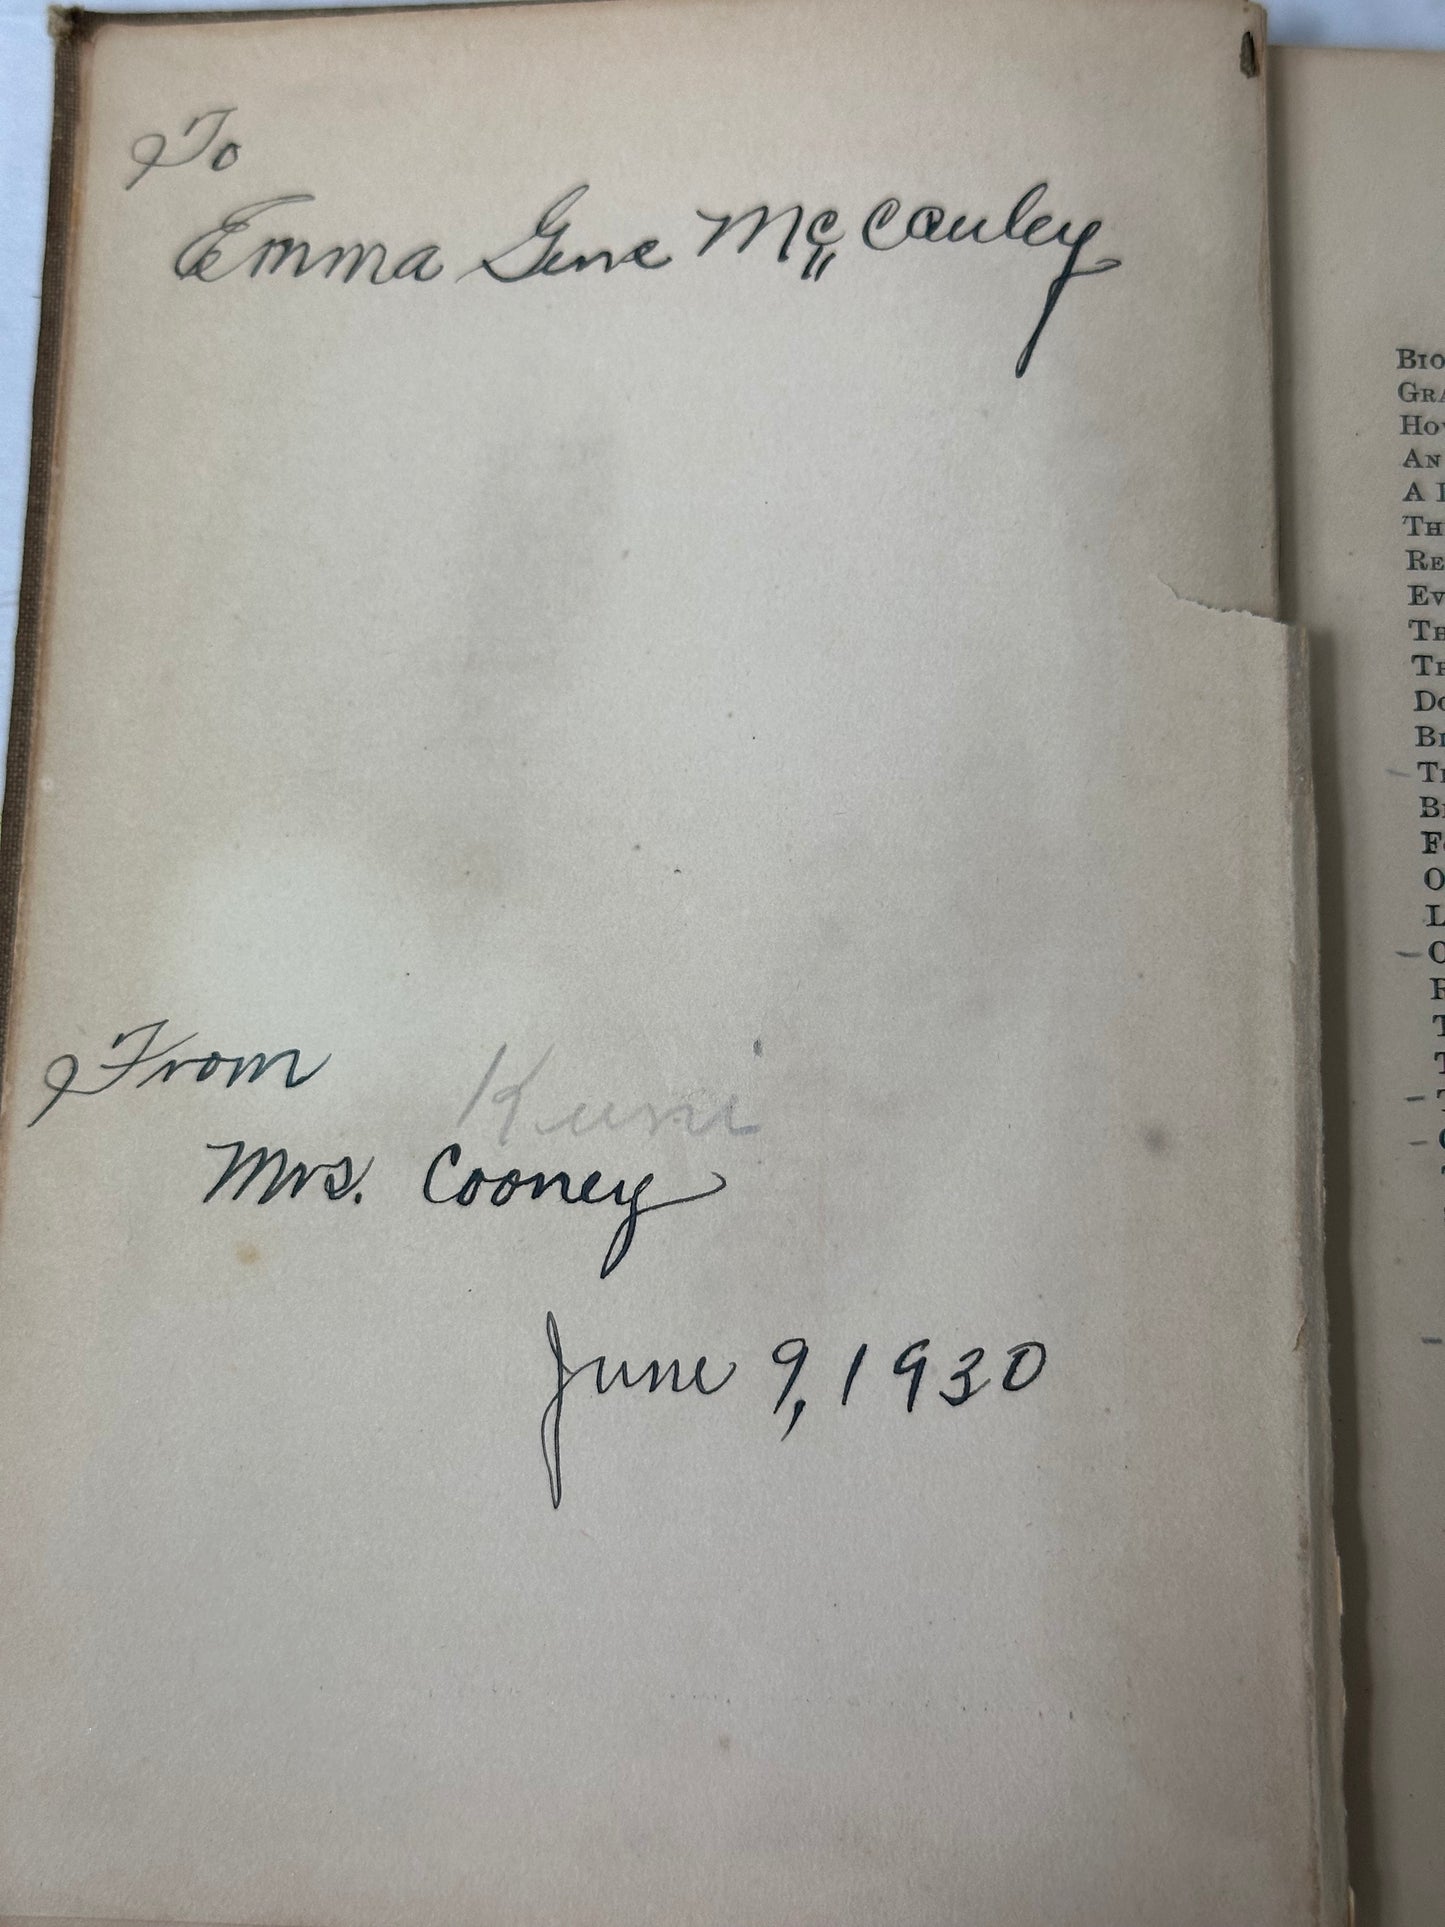 To
Emma Gene McCauley
From
Kuni
Mrs. Cooney
June 9, 1930
BIO
GRA
HOW
AN
A
TH
RE
EV
TH
TH
DO
BI
TI
BI
FO
O
L